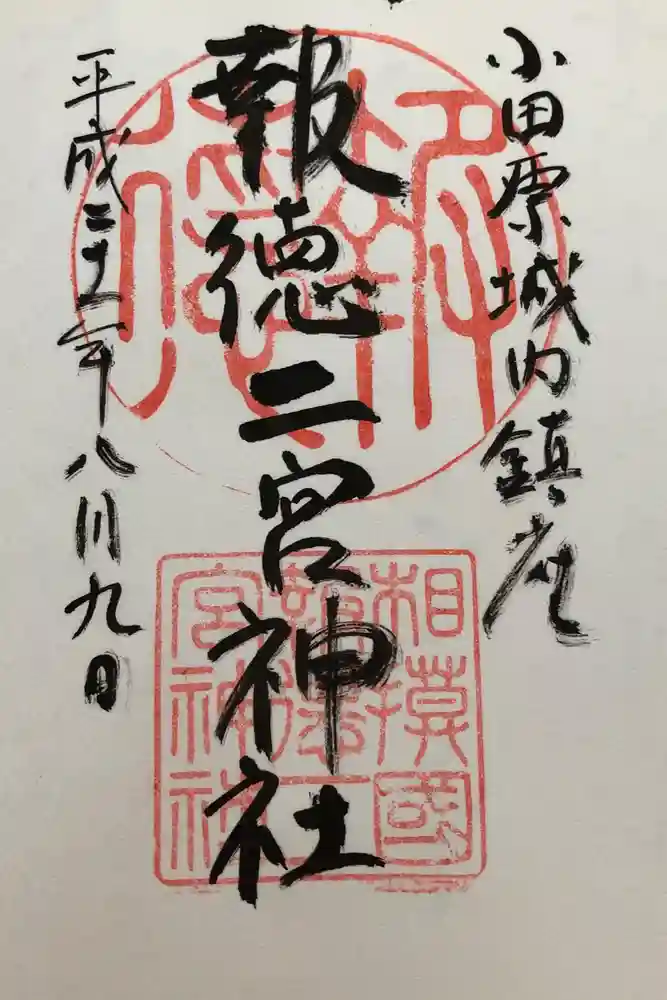 小田原城内鎮座
報徳二宮神社
平成二十二年八月九日
相模國
報徳二
宮神社